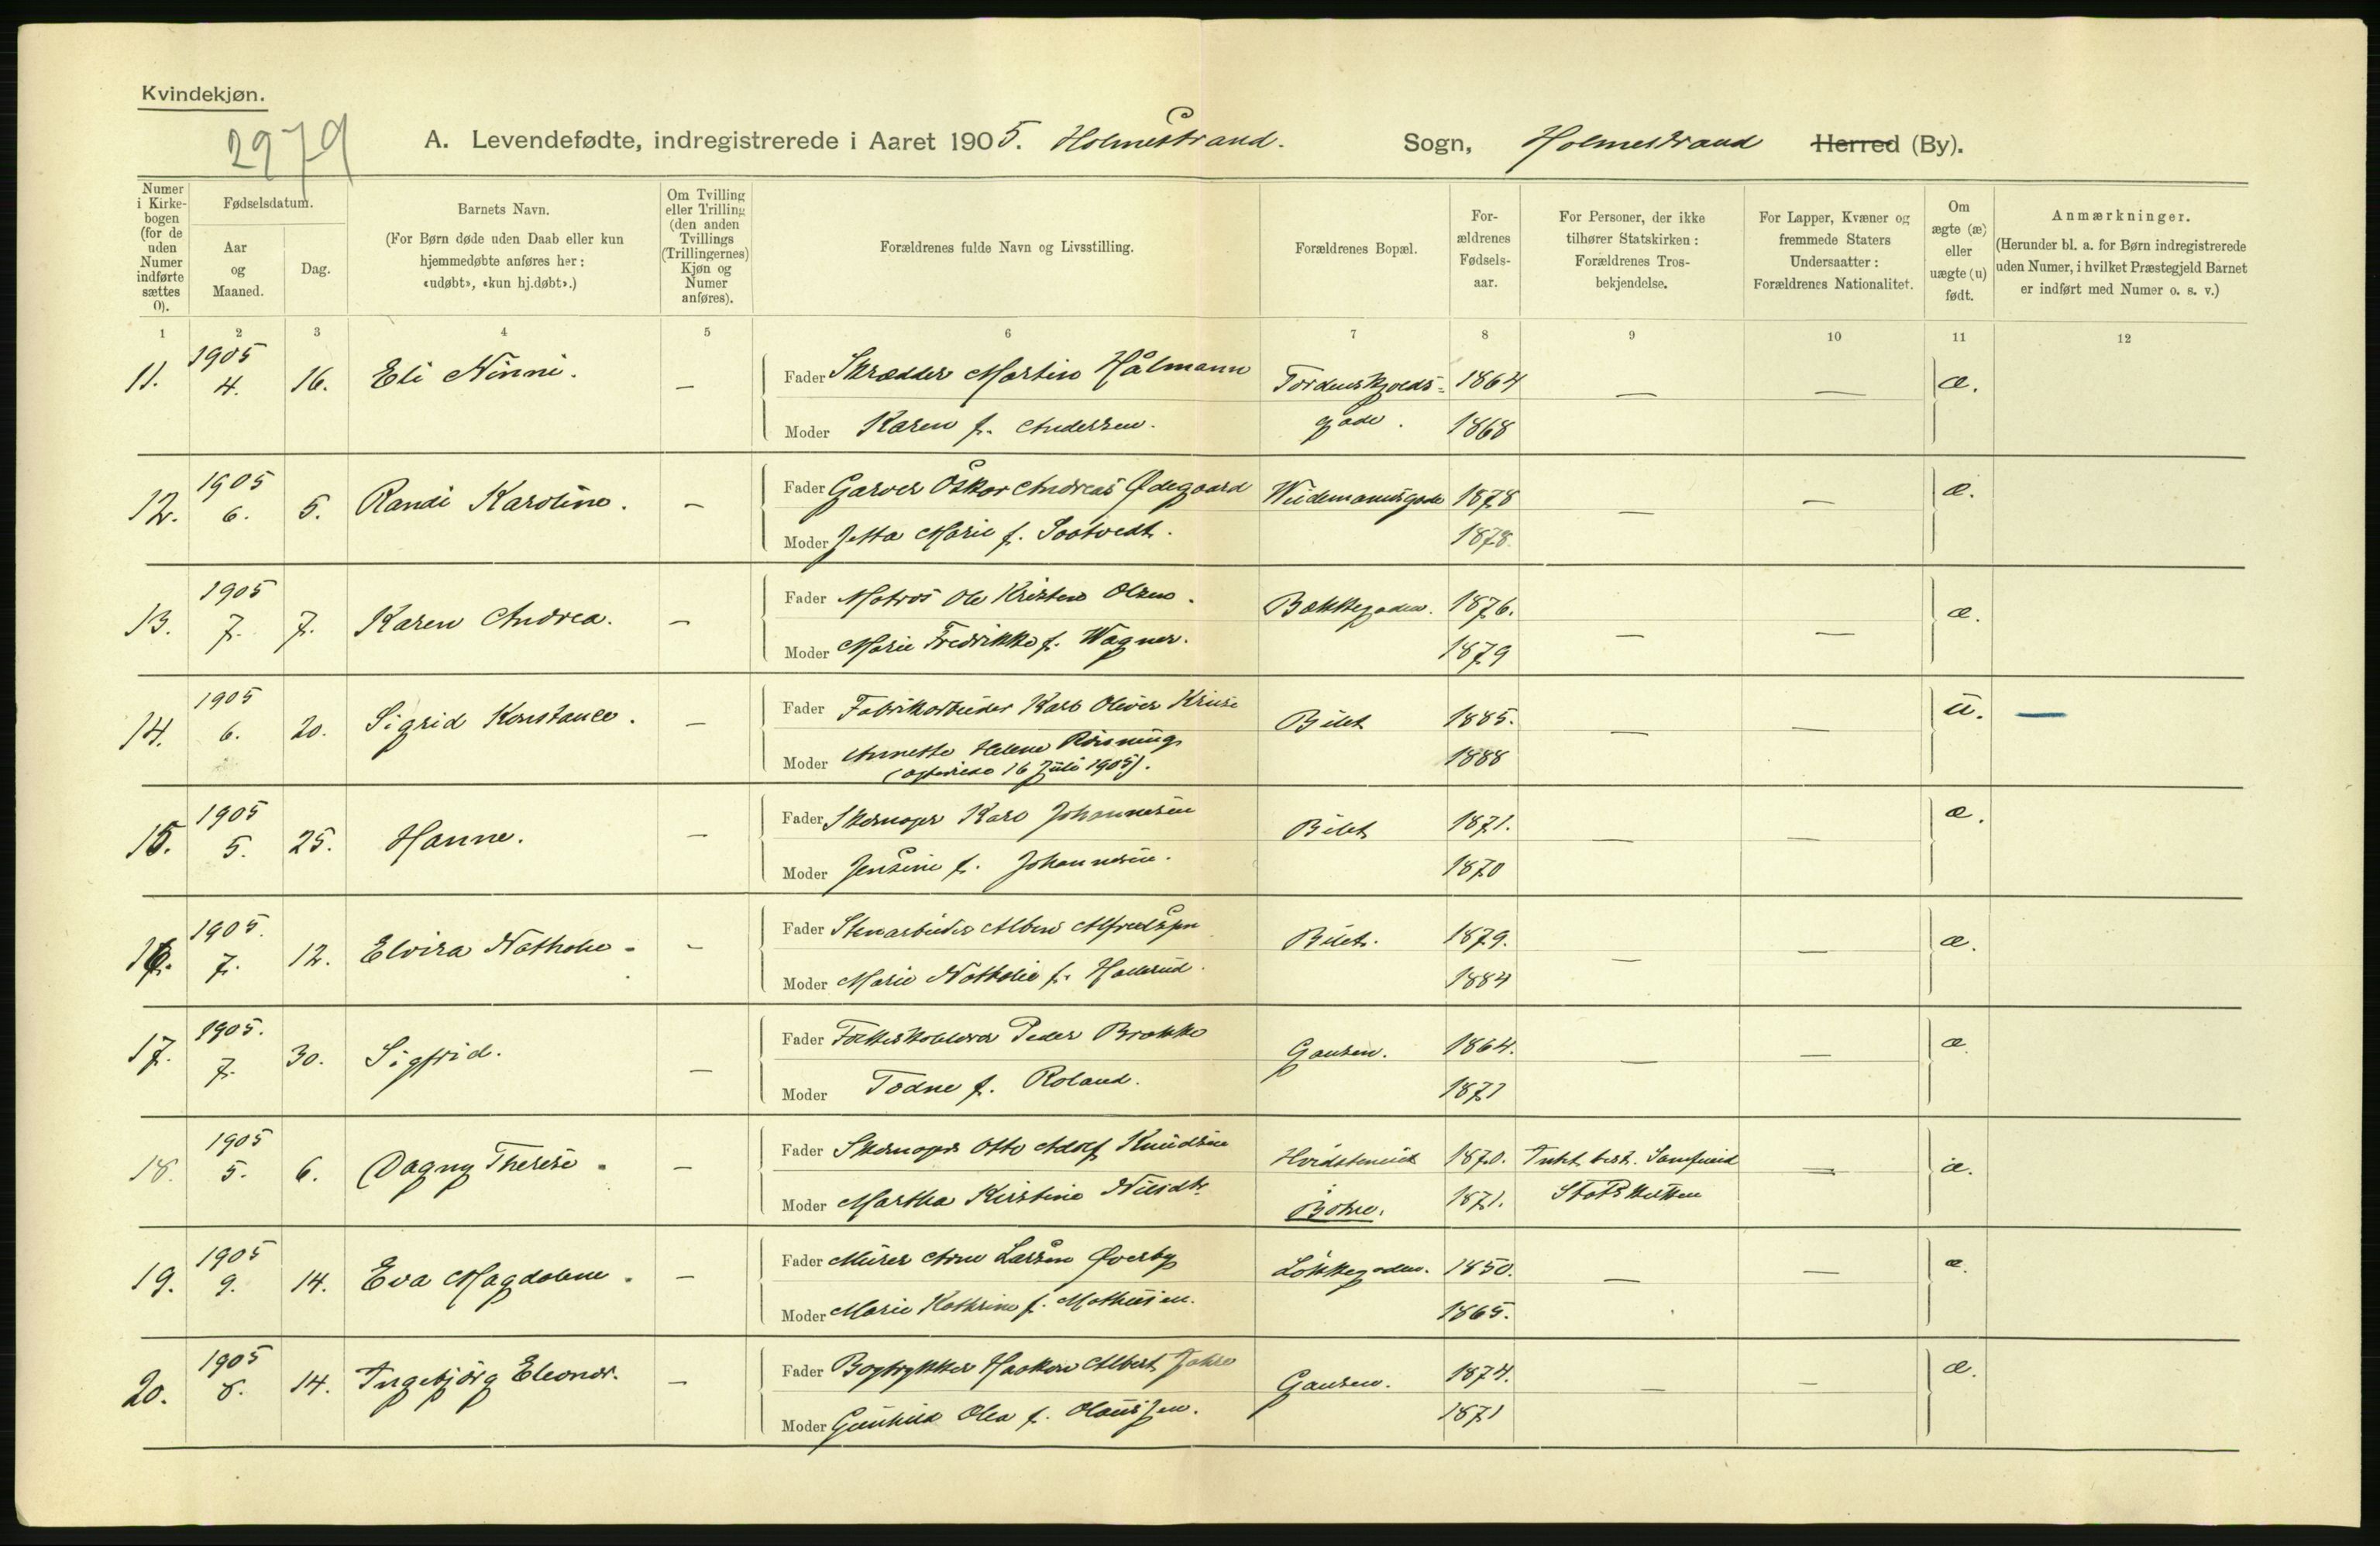 Kvindekjøn.
2979
A. Levendefødte, indregistrerede i Aaret 1905. Holmestrand. Sogn, Holmestrand Herred (By).
Numer i Kirkebogen (for de uden Numer indførte sættes 0).
Fødselsdatum.
Aar og Maaned.
Dag.
Barnets Navn.
(For Børn døde uden Daab eller kun hjemmedøbte anføres her: «udøbt», «kun hj.døbt».)
Om Tvilling eller Trilling (den anden Tvillings (Trillingernes) Kjøn og Numer anføres).
Forældrenes fulde Navn og Livsstilling.
Forældrenes Bopæl.
Forældrenes Fødselsaar.
For Personer, der ikke tilhører Statskirken: Forældrenes Trosbekjendelse.
For Lapper, Kvæner og fremmede Staters Undersaatter: Forældrenes Nationalitet.
Om ægte (æ) eller uægte (u) født.
Anmærkninger.
(Herunder bl. a. for Børn indregistrerede uden Numer, i hvilket Præstegjeld Barnet er indført med Numer o. s. v.)
1 2 3 4 5 6 7 8 9 10 11 12
11. 1905 4. 16. Eli Ninni. — Fader Skrædder Martin Hålmann Tordenskjolds- 1864 — — æ.
Moder Karen f. Andersen. gade. 1868
12. 1905 6. 5. Randi Karoline. — Fader Garver Oskar Andreas Ødegaard Wiidemannsgade 1878 — — æ.
Moder Jetta Marie f. Sootvedt. 1878.
13. 1905 7. 7. Karen Andrea. — Fader Matros Ole Kristen Olsen. Bækkegaden. 1876. — — æ.
Moder Marie Fredrikke f. Wagner. 1879
14. 1905 6. 20. Sigrid Konstance. — Fader Fabrikarbeider Karl Oliver Kruse Bilet 1885. — — u. —
Moder Annette Helene Rønning 1888
(ægteviede 16 Juli 1905).
15. 1905 5. 25. Hanne. — Fader Skomager Karl Johannesen Bilet 1871. — — æ.
Moder Jensine f. Johannesen. 1870
16. 1905. 7. 12. Elvira Nathalie. — Fader Stenarbeider Albin Alfredsson Bilet. 1879. — — æ.
Moder Marie Nathalie f. 1884
17. 1905. 7. 30. Sigfrid. — Fader Folkeskolelærer Peder Brække Gausen. 1864. — — æ.
Moder Todne f. Roland. 1871
18. 1905 5. 6. Dagny Therese. — Fader Skomager Otto Adolf Knudsen Hvidstensrud 1870. Intet best. Samfund — æ.
Moder Martha Kirstine Nilsdtr. Botne. 1871. Statskirken
19. 1905 9. 14. Eva Magdalene. — Fader Murer Arne Larsen Øverby Løkkegaden. 1850. — — æ.
Moder Marie Kathrine f. Mathisen. 1865.
20. 1905 8. 14. Ingebjørg Eleonor. — Fader Bogtrykker Haakon Albert Jahre Gausen. 1874. — — æ.
Moder Gunhild Olea f. Olaussen. 1871